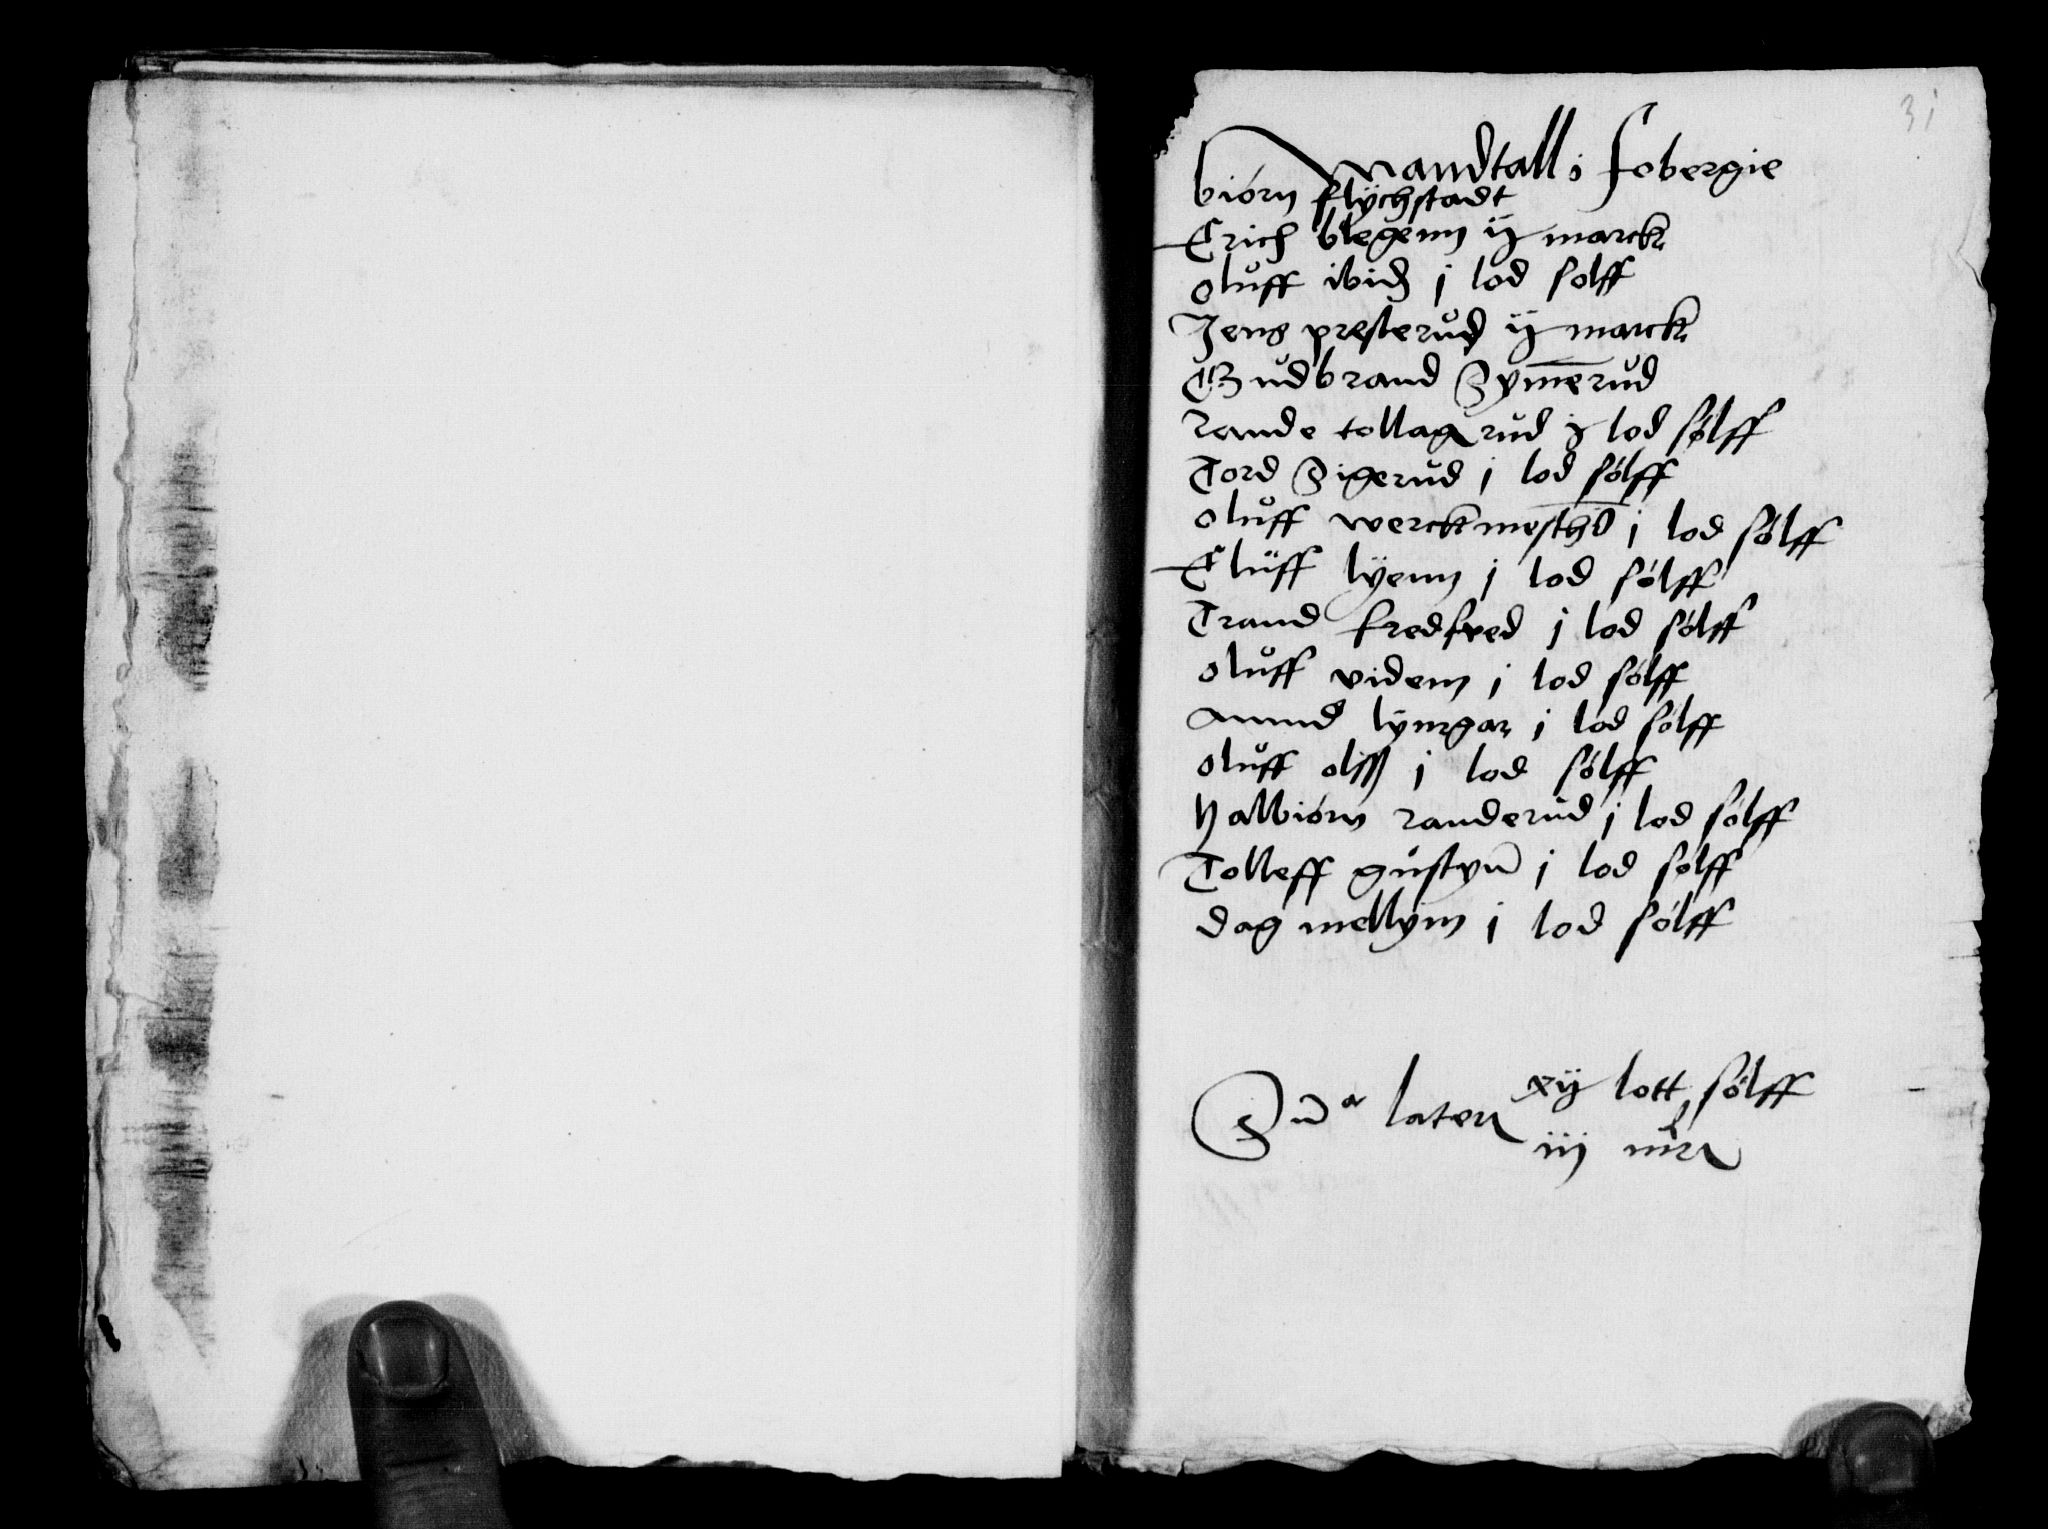 31
Mandtall i fobergie
biórn flÿchstadt
Erich blegenn ij marck
oluff ibid j lod solff
Jens presterud ij marck
Gudbrand Symerud
Rande tollagrud j lod sólff
Tord Sigerud j lod sólff
oluff werckmesth j lod sólff
Eluff lyenn j lod sólff
Trand fredsved j lod sólff
oluff videnn j lod sólff
Amund lyngar j lod sólff
oluff olss j lod sólff
Halbiórn randerud j lod sólff
Tolleff gustyn j lod solff
dag mellym j lod sólff
Sua later xij lott sólff
iiij mr